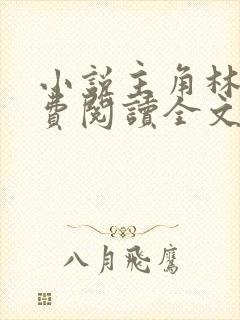 小說主角林
費閱讀全文
八月飛鷹